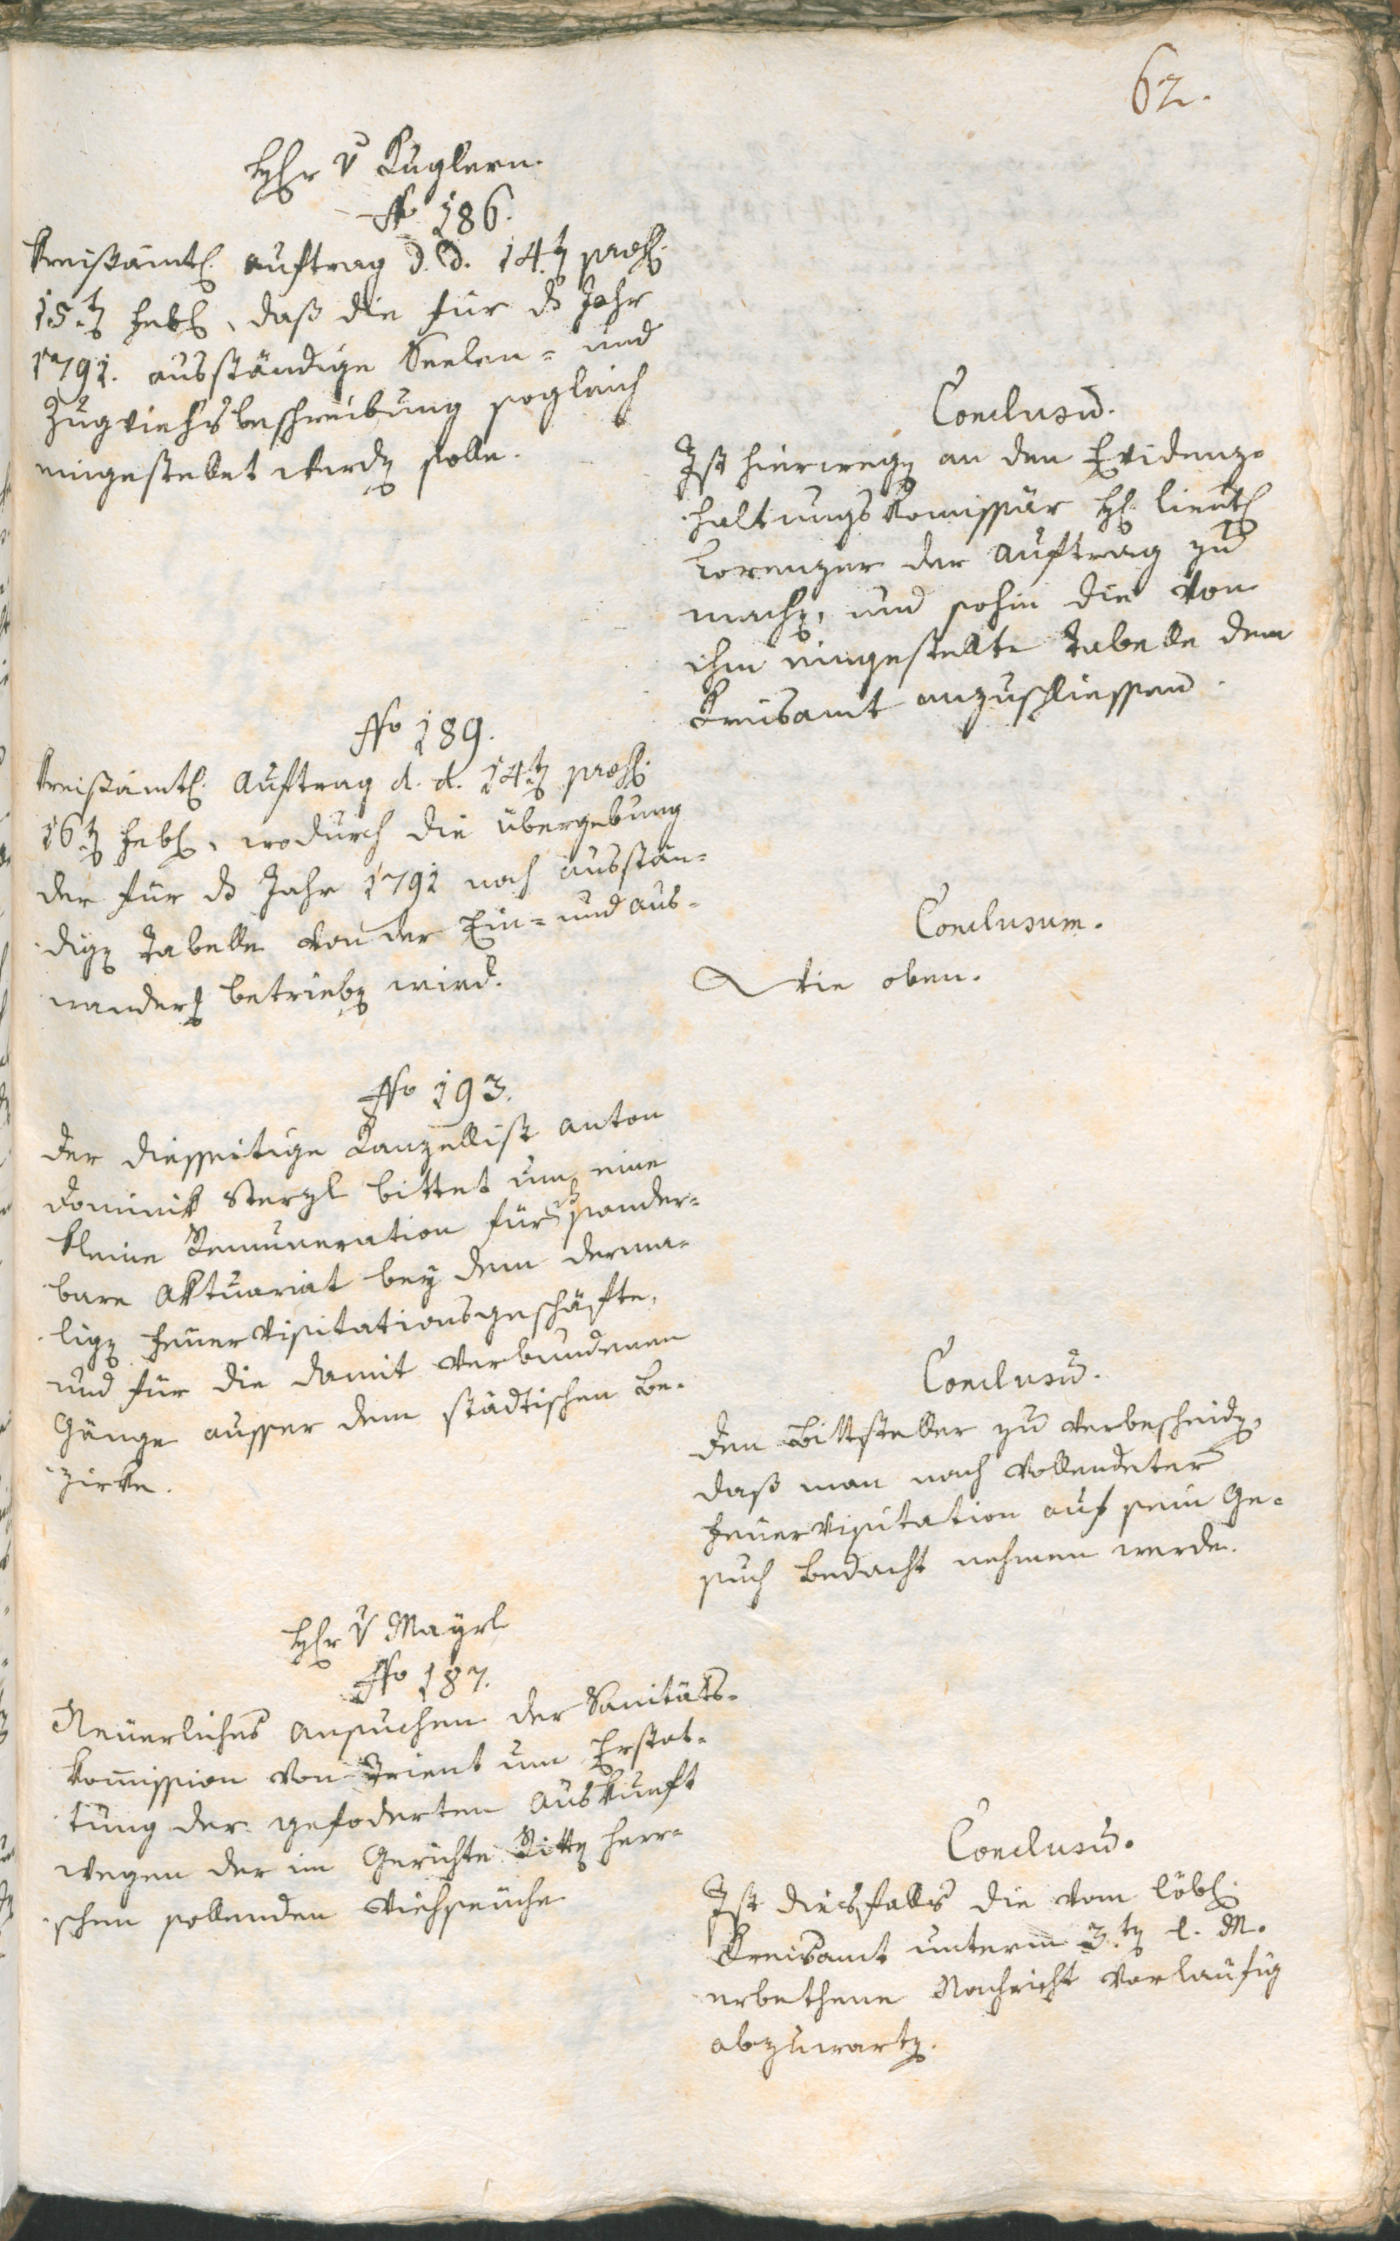 62.
Hr. v Kuglern.
No 186.
Kreisämtl. Auftrag d. d. 14.t praes.
15.t Febr., daß die für ds Jahr
1791. ausständige Seelen- und
Zugviehsbeschreibung sogleich
eingestellet werdn solle.
Conclusum.
Ist hierwegn an den Evidenz-
haltungs Komissär H. Lieut.
Lorenzer der Auftrag zu
machn, und sohin die von
ihm eingestellte Tabelle dem
Kreisamt anzuschliessen.
No 189.
Kreisämtl. Auftrag d. d. 14.t praes.
16.t Febr., wodurch die Übergebung
der für ds Jahr 1791 noch ausstän-
dign Tabelle von der Ein- und Aus-
wanderg betriebn wird.
Conclusum.
Wie oben.
No 193.
Der diesseitige Kanzellist Anton
Dominik Sterzl bittet um eine
kleine Remuneration für ds sonder-
bare Aktuariat bey dem derma-
lign Feuervisitationsgeschäfte,
und für die damit verbundenen
Gänge ausser dem städtischen Be-
zirke.
Conclusum.
Den Bittsteller zu verbescheidn,
daß man nach vollendeter
Feuervisitation auf sein Ge-
such Bedacht nehmen werde.
Hr. v Mayrl
No 187.
Neuerliches Ansuchen der Sanitäts-
kommission von Trient um Erstat-
tung der gefoderten Auskunft
wegen der im Gerichte Rittn herr-
schen sollenden Viehseuche
Conclusum.
Ist diesfalls die vom löbl.
Kreisamt unterm 3.tn l. M.
erbethene Nachricht vorläufig
abzuwartn.